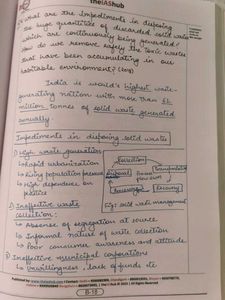 theIAShub
What are the impediments in disposing
the huge quantities of discarded solid waste
which are continuously being generated?
How do we remove safely the toxic wastes
that have been accumulating in our
habitable environment? (2018)
India is world's highest waste-
generating nation with more than 62
million tonnes of solid waste generated
annually.
Impediments in disposing solid waste
1) High waste generation
↳ Rapid urbanization
↳ Rising population pressure
↳ High dependence on
plastic
Collection
Transportation
Disposal
Process flow
Recovery
Fig: solid waste management
2) Ineffective waste
collection:
↳ Absence of segregation at source
↳ Informal nature of waste collection
↳ Poor consumer awareness and attitude
3) Ineffective municipal corporations
↳ Unwillingness, lack of funds etc